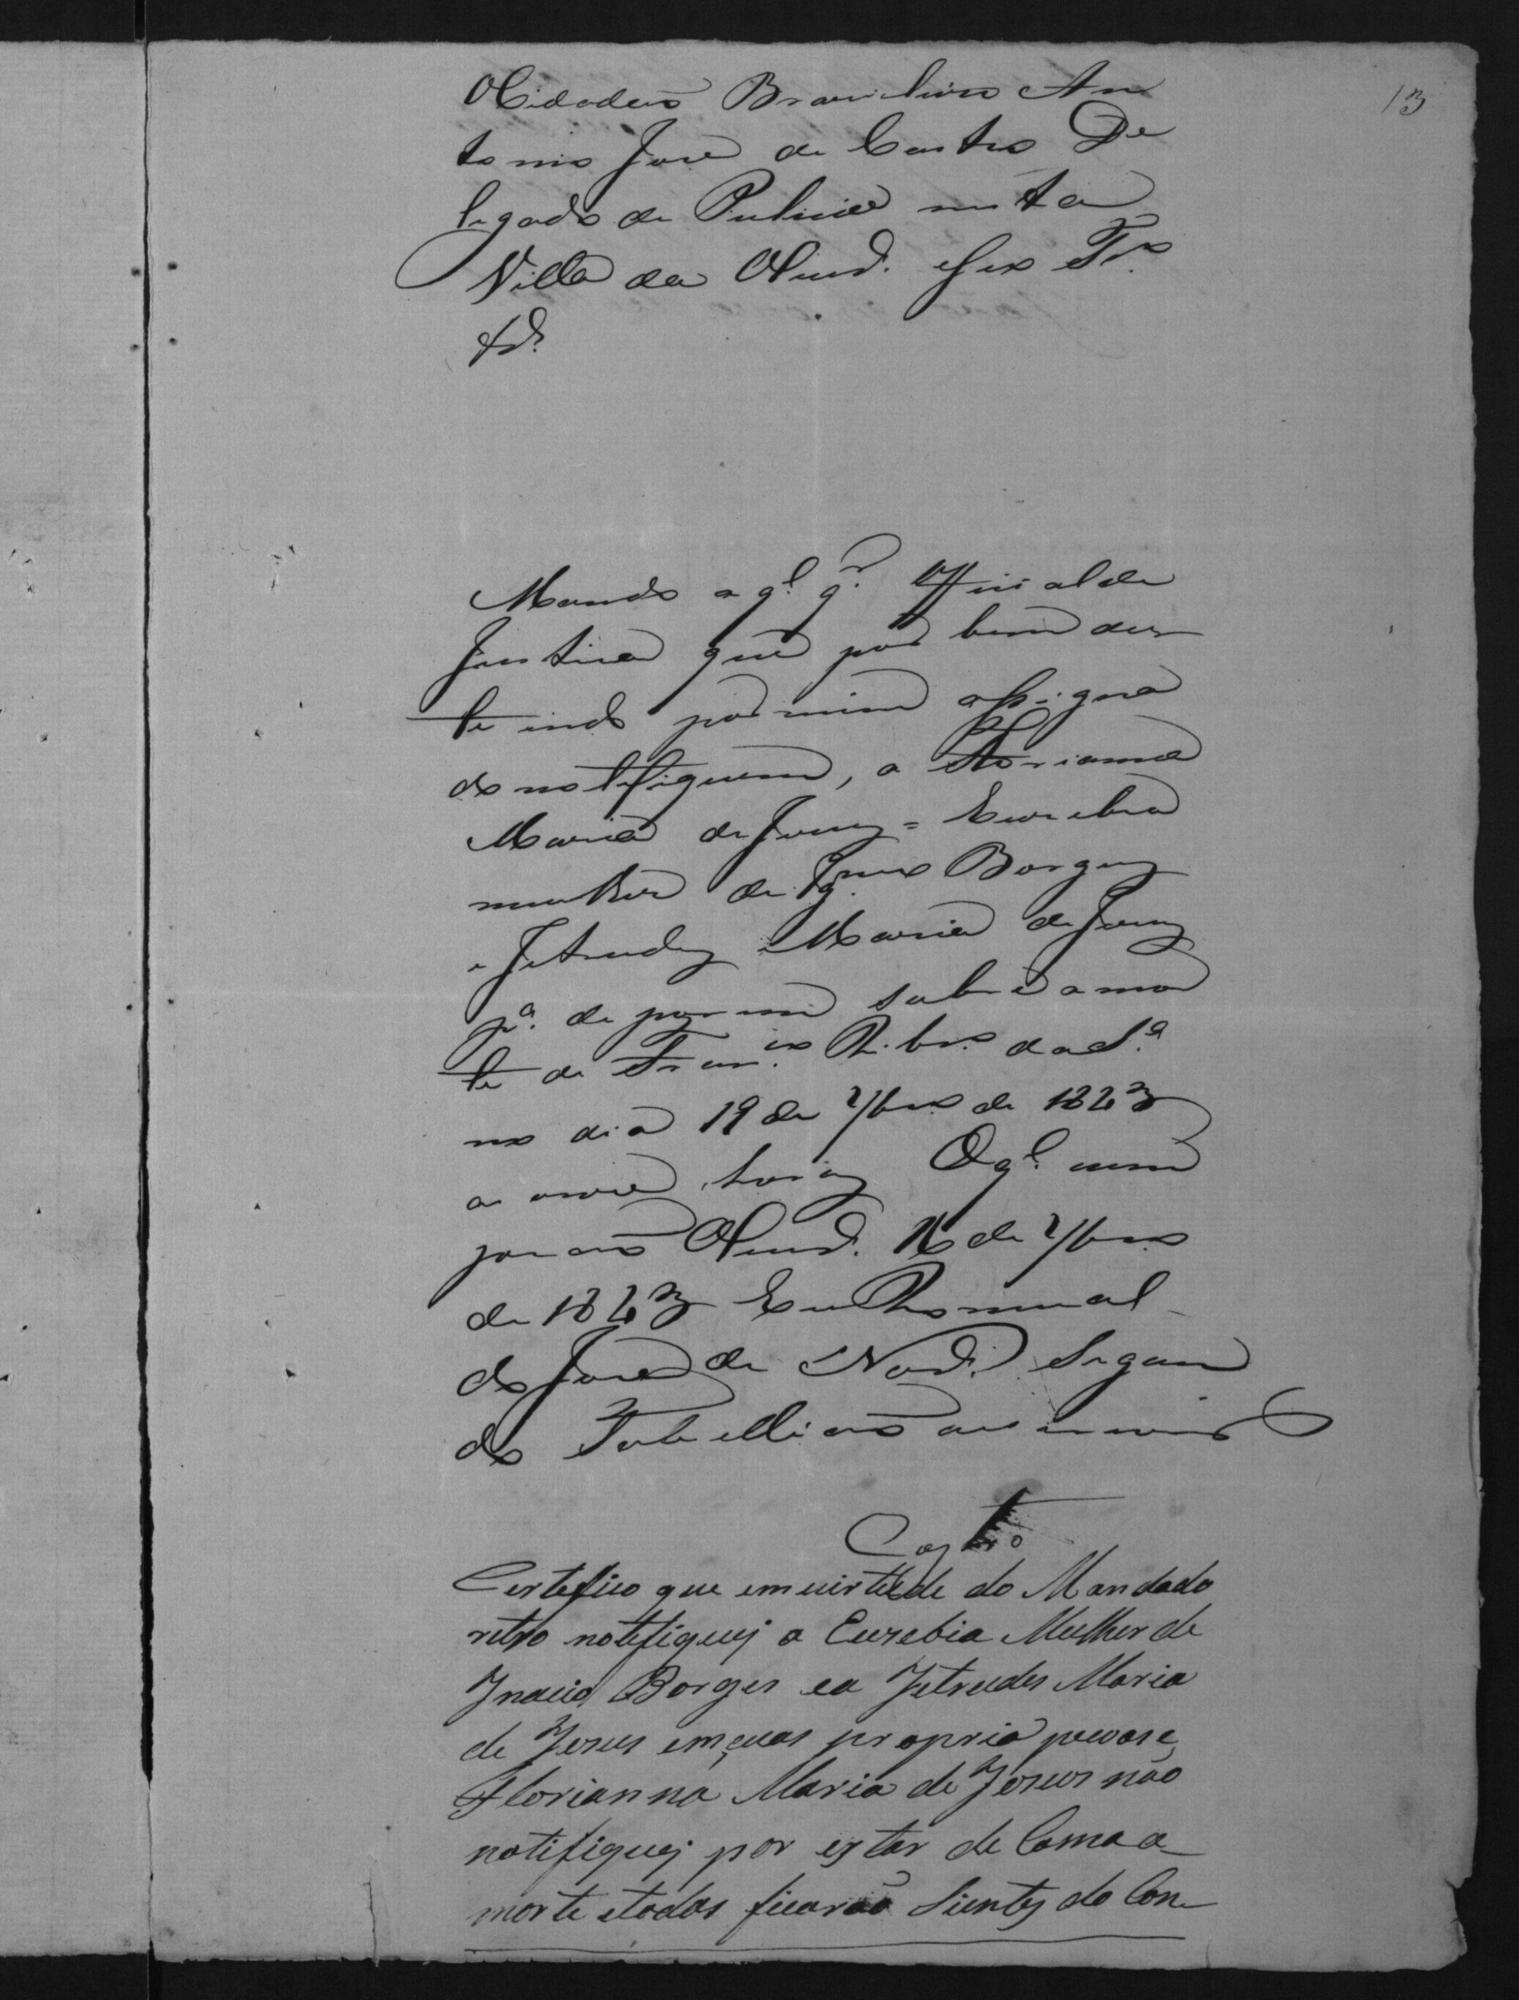 13
OCidadão Brazileiro An
tonio José de Castro De
legado de Pulicia nesta
Villa da Olivr.ª e seo Tr.º
&.ª
Mando a q.l q.r Official de
Justica que por bem des
te indo por mim assigna
do notefiquem, a Floriana
Maria de Jesuz = Euzebia
mulher de Ign.cio Borgez
e Jetrudez Maria de Jesuz
p.ª deporem sobre a mor
te de Fran.co Rib.ro da S.ª
no dia 19 de 7br.º de 1843
as nove horaz O q.l cum
porão Olivr.ª 16 de 7br.º
de 1843 Eu Romual
do José de And.e Segun
do Tabellião que escrevi
Castro
Certefico que em virtude do Mandado
retro notefiquej a Euzebia Mulher de
Jnacio Borges e a Jetrudes Maria
de Jezus em çuas propria pecoas e
Florianna Maria de Jezus não
notifiquej por estar de Cama a
morte e todas ficarão Sientes do Con